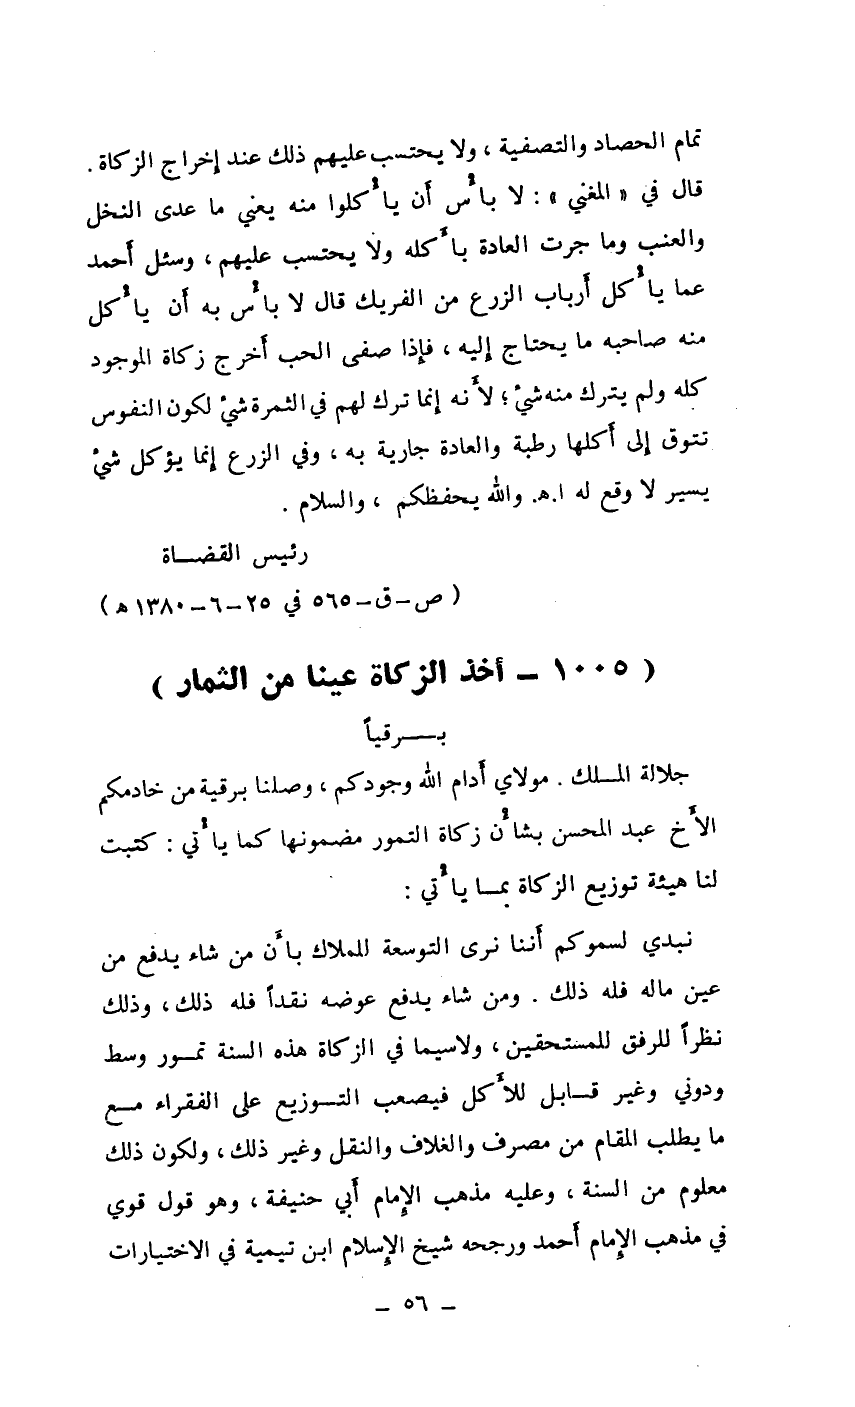 تمام الحصاد والتصفية ، ولا يحتسب عليهم ذلك عند إخراج الزكاة .
قال في « المغني » : لا بأس أن يأكلوا منه يعني ما عدى النخل
والعنب وما جرت العادة بأكله ولا يحتسب عليهم ، وسئل أحمد
عما يأكل أرباب الزرع من الفريك قال لا بأس به أن يأكل
منه صاحبه ما يحتاج إليه ، فإذا صفى الحب أخرج زكاة الموجود
كله ولم يترك منه شئ ؛ لأنه إنما ترك لهم في الثمرة شئ لكون النفوس
تتوق إلى أكلها رطبة والعادة جارية به ، وفي الزرع إنما يؤكل شئ
يسير لا وقع له ا.هـ. والله يحفظكم ، والسلام .
رئيس القضــاة
( ص-ق-٥٦٥ في ٢٥-٦-١٣٨٠ هـ )
( ١٠٠٥ - أخذ الزكاة عينا من الثمار )
بــرقياً
جلالة المـلك . مولاي أدام الله وجودكم ، وصلنا برقية من خادمكم
الأخ عبد المحسن بشأن زكاة التمور مضمونها كما يأتي : كتبت
لنا هيئة توزيع الزكاة بمـا يأتي :
نبدي لسموكم أننا نرى التوسعة للملاك بأن من شاء يدفع من
عين ماله فله ذلك . ومن شاء يدفع عوضه نقداً فله ذلك ، وذلك
نظراً للرفق للمستحقين ، ولاسيما في الزكاة هذه السنة تمـور وسط
ودوني وغير قـابل للأكل فيصعب التـوزيع على الفقراء مـع
ما يطلب المقام من مصرف والغلاف والنقل وغير ذلك ، ولكون ذلك
معلوم من السنة ، وعليه مذهب الإمام أبي حنيفة ، وهو قول قوي
في مذهب الإمام أحمد ورجحه شيخ الإسلام ابن تيمية في الاختيارات
- ٥٦ -